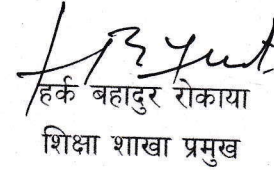 हर्क बहादुर रोकाया
शिक्षा शाखा प्रमुख